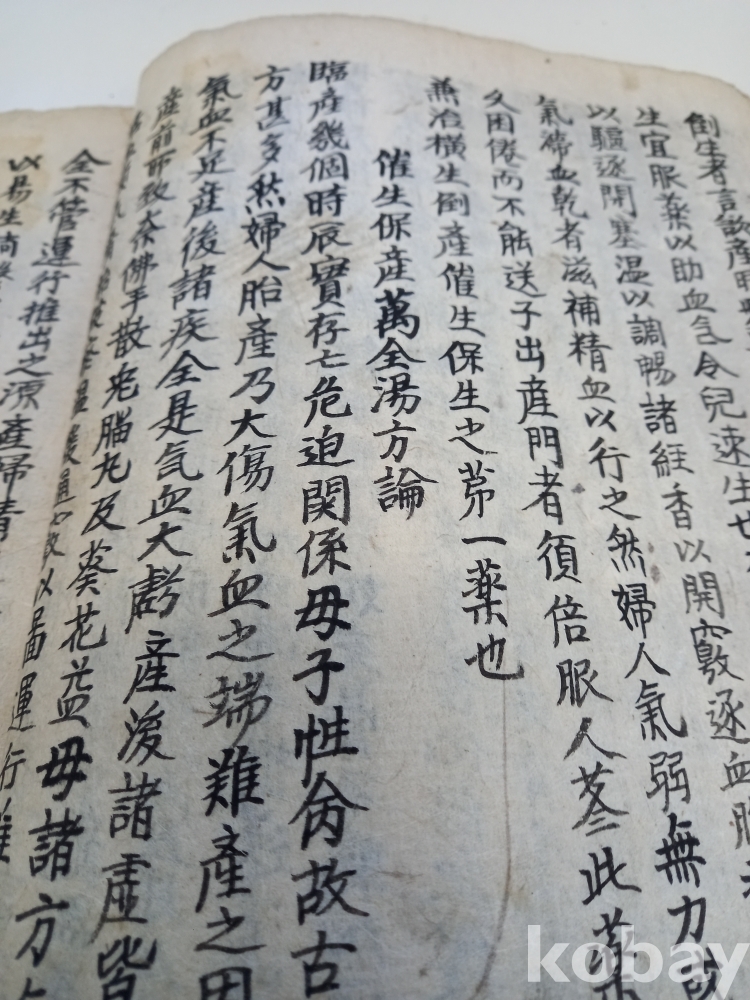 倒生者言欲產時
生宜服藥以助血氣令兒速生
以驅逐閉塞溫以調暢諸經香以開竅逐血
氣滯血乾者滋補精血以行之然婦人氣弱無力
久困倦而不能送子出產門者須倍服人參此藥
兼治橫生倒產催生保生之苐一藥也
催生保產萬全湯方論
臨產幾個時辰實存亡危迫関係母子性命故古
方甚多然婦人胎產乃大傷氣血之端難產之因
氣血不足產後諸疾全是气血大虧產後諸虛皆
產前所致奈佛手散兔腦丸及葵花益母諸方
全不管運行推出之源產婦精
以易生
以啚運行
kobay